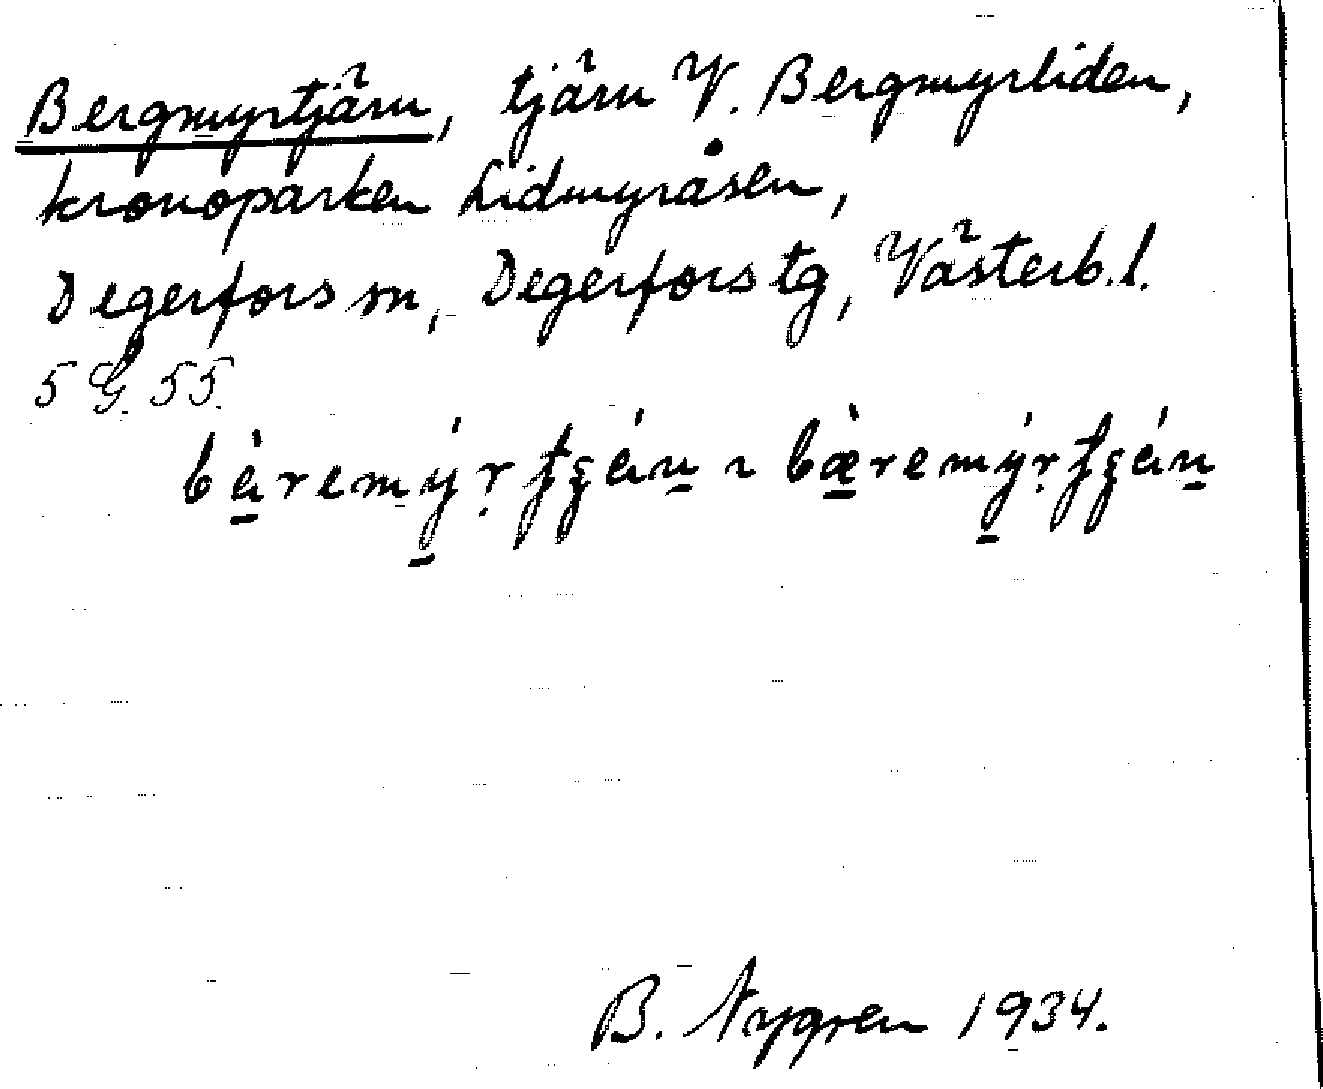 Bergmyrtjärn, tjärn V. Bergmyrliden,
kronoparken Lidmyråsen,
Degerfors sn, Degerfors tg, Västerb.l.
5 G. 55.
B. Nygren 1934.